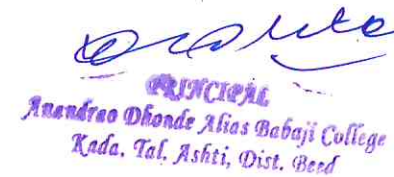 PRINCIPAL
Anandrao Dhonde Alias Babaji College
Kada. Tal. Ashti, Dist. Beed